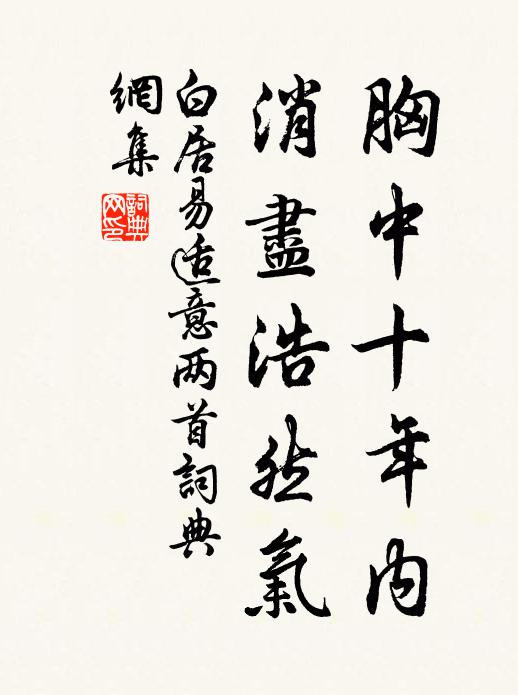 胸中十年内
消盡浩然氣
白居易适意两首詞典
網集
詞典
网印